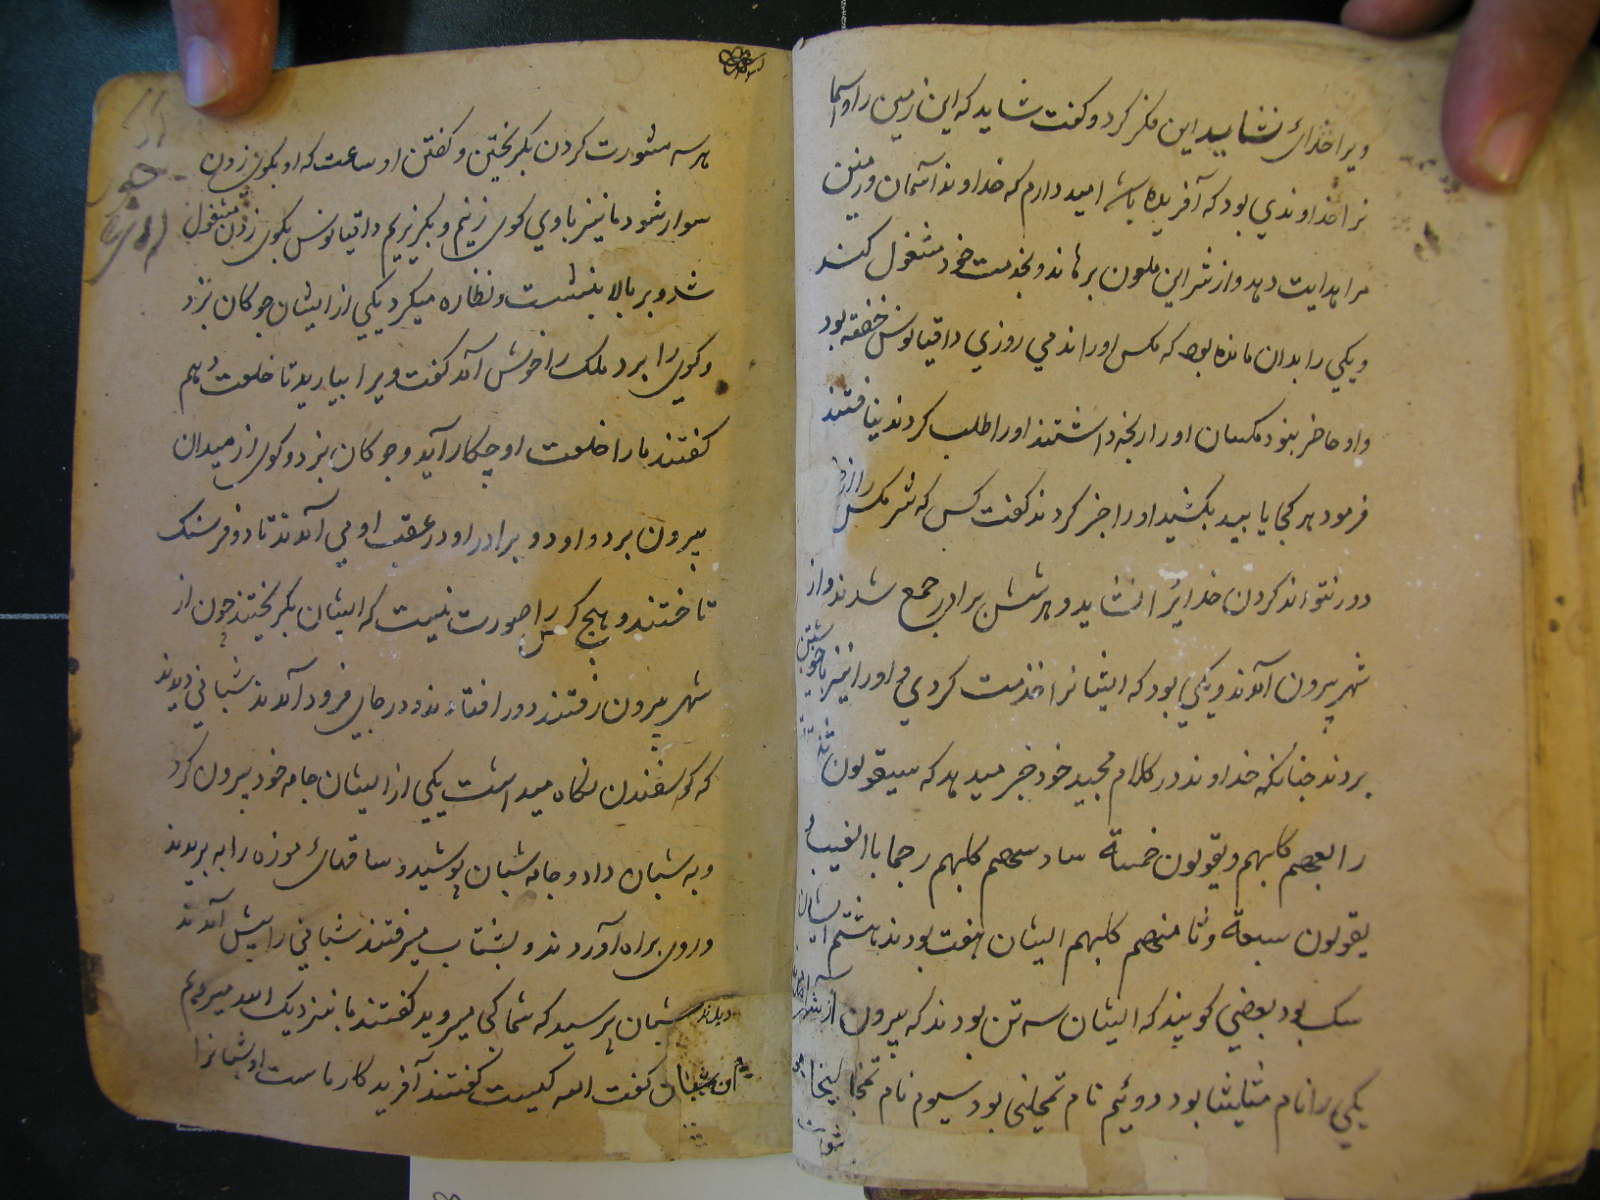 ویرا خدائ نشاید این فکر کرد و کفت شاید که این زمین را و اسما
نرا خداوندي بود که آفریده باشد امید دارم که خداوند آسمان و زمین
مرا هدایت دهد و از شر این ملعون برهاند و بخدمت خود مشغول کند
ویکي را بدان مانده بود که مکس او را ندمي روزي دقیانوس خفته بود
و او حاضر نبود مکسان او را رنجه داشتند او را طلب کردند نیافتند
فرمود هر کجا یابید بکشید او را خبر کردند کفت کس که شر مکس را از
دور نتواند کردن خدائرا نشاید و هر شش برادر جمع شدند و از
شهر بیرون آمدند ویکي بود که ایشانرا خذمت کردي او را نیز با خویشتن
بردند چنانکه خداوند در کلام مجید خود خبر میدهد که سیقولون ثلثة
رابعهم کلبهم ویقولون خمسة سادسهم کلبهم رجما بالغیب و
یقولون سبعة وثامنهم کلبهم ایشان هفت بودند هشتم ایشان
سک بود بعضي کویند که ایشان سه تن بودند که بیرون از شهر
یکي را نام بود دوئیم نام بود سیوم نام
هر سه مشورت کردن بکریختن و کفتن او ساعت که او بکوی زدن
سوار شود ما نیز با وي کوی زنیم و بکریزیم دقیانوس بکوی زدن مشغول
شد و بر بالا بنشست و نظاره میکرد یکي از ایشان چوکان بزد
و کوی را برد ملک را خوش آمد کفت ویرا بیارید تا خلعت دهم
کفتند ما را خلعت او چکار آید و چوکان بزد و کوی از میدان
بیرون برد و او دو برادر او در عقب او مي آمدند تا دو فرسنک
تاختند و هیچ کس را صورت نیست که ایشان بکریختند چون از
شهر بیرون رفتند دور افتادند و در جای فرود آمدند شباني دیدند
که کوسفندن نکاه میداشت یکي از ایشان جامه خود بیرون کرد
و به شبان داد و جامه شبان پوشید و ساقهائ موزه را به بریدند
و روی براه آوردند و بشتاب میرفتند شباني را پیش آمدند
شبان پرسید که شما کجا میروید کفتند ما بنزدیک الله میرویم
آن شبان کفت الله کیست کفتند آفریدکار ماست او شمانرا